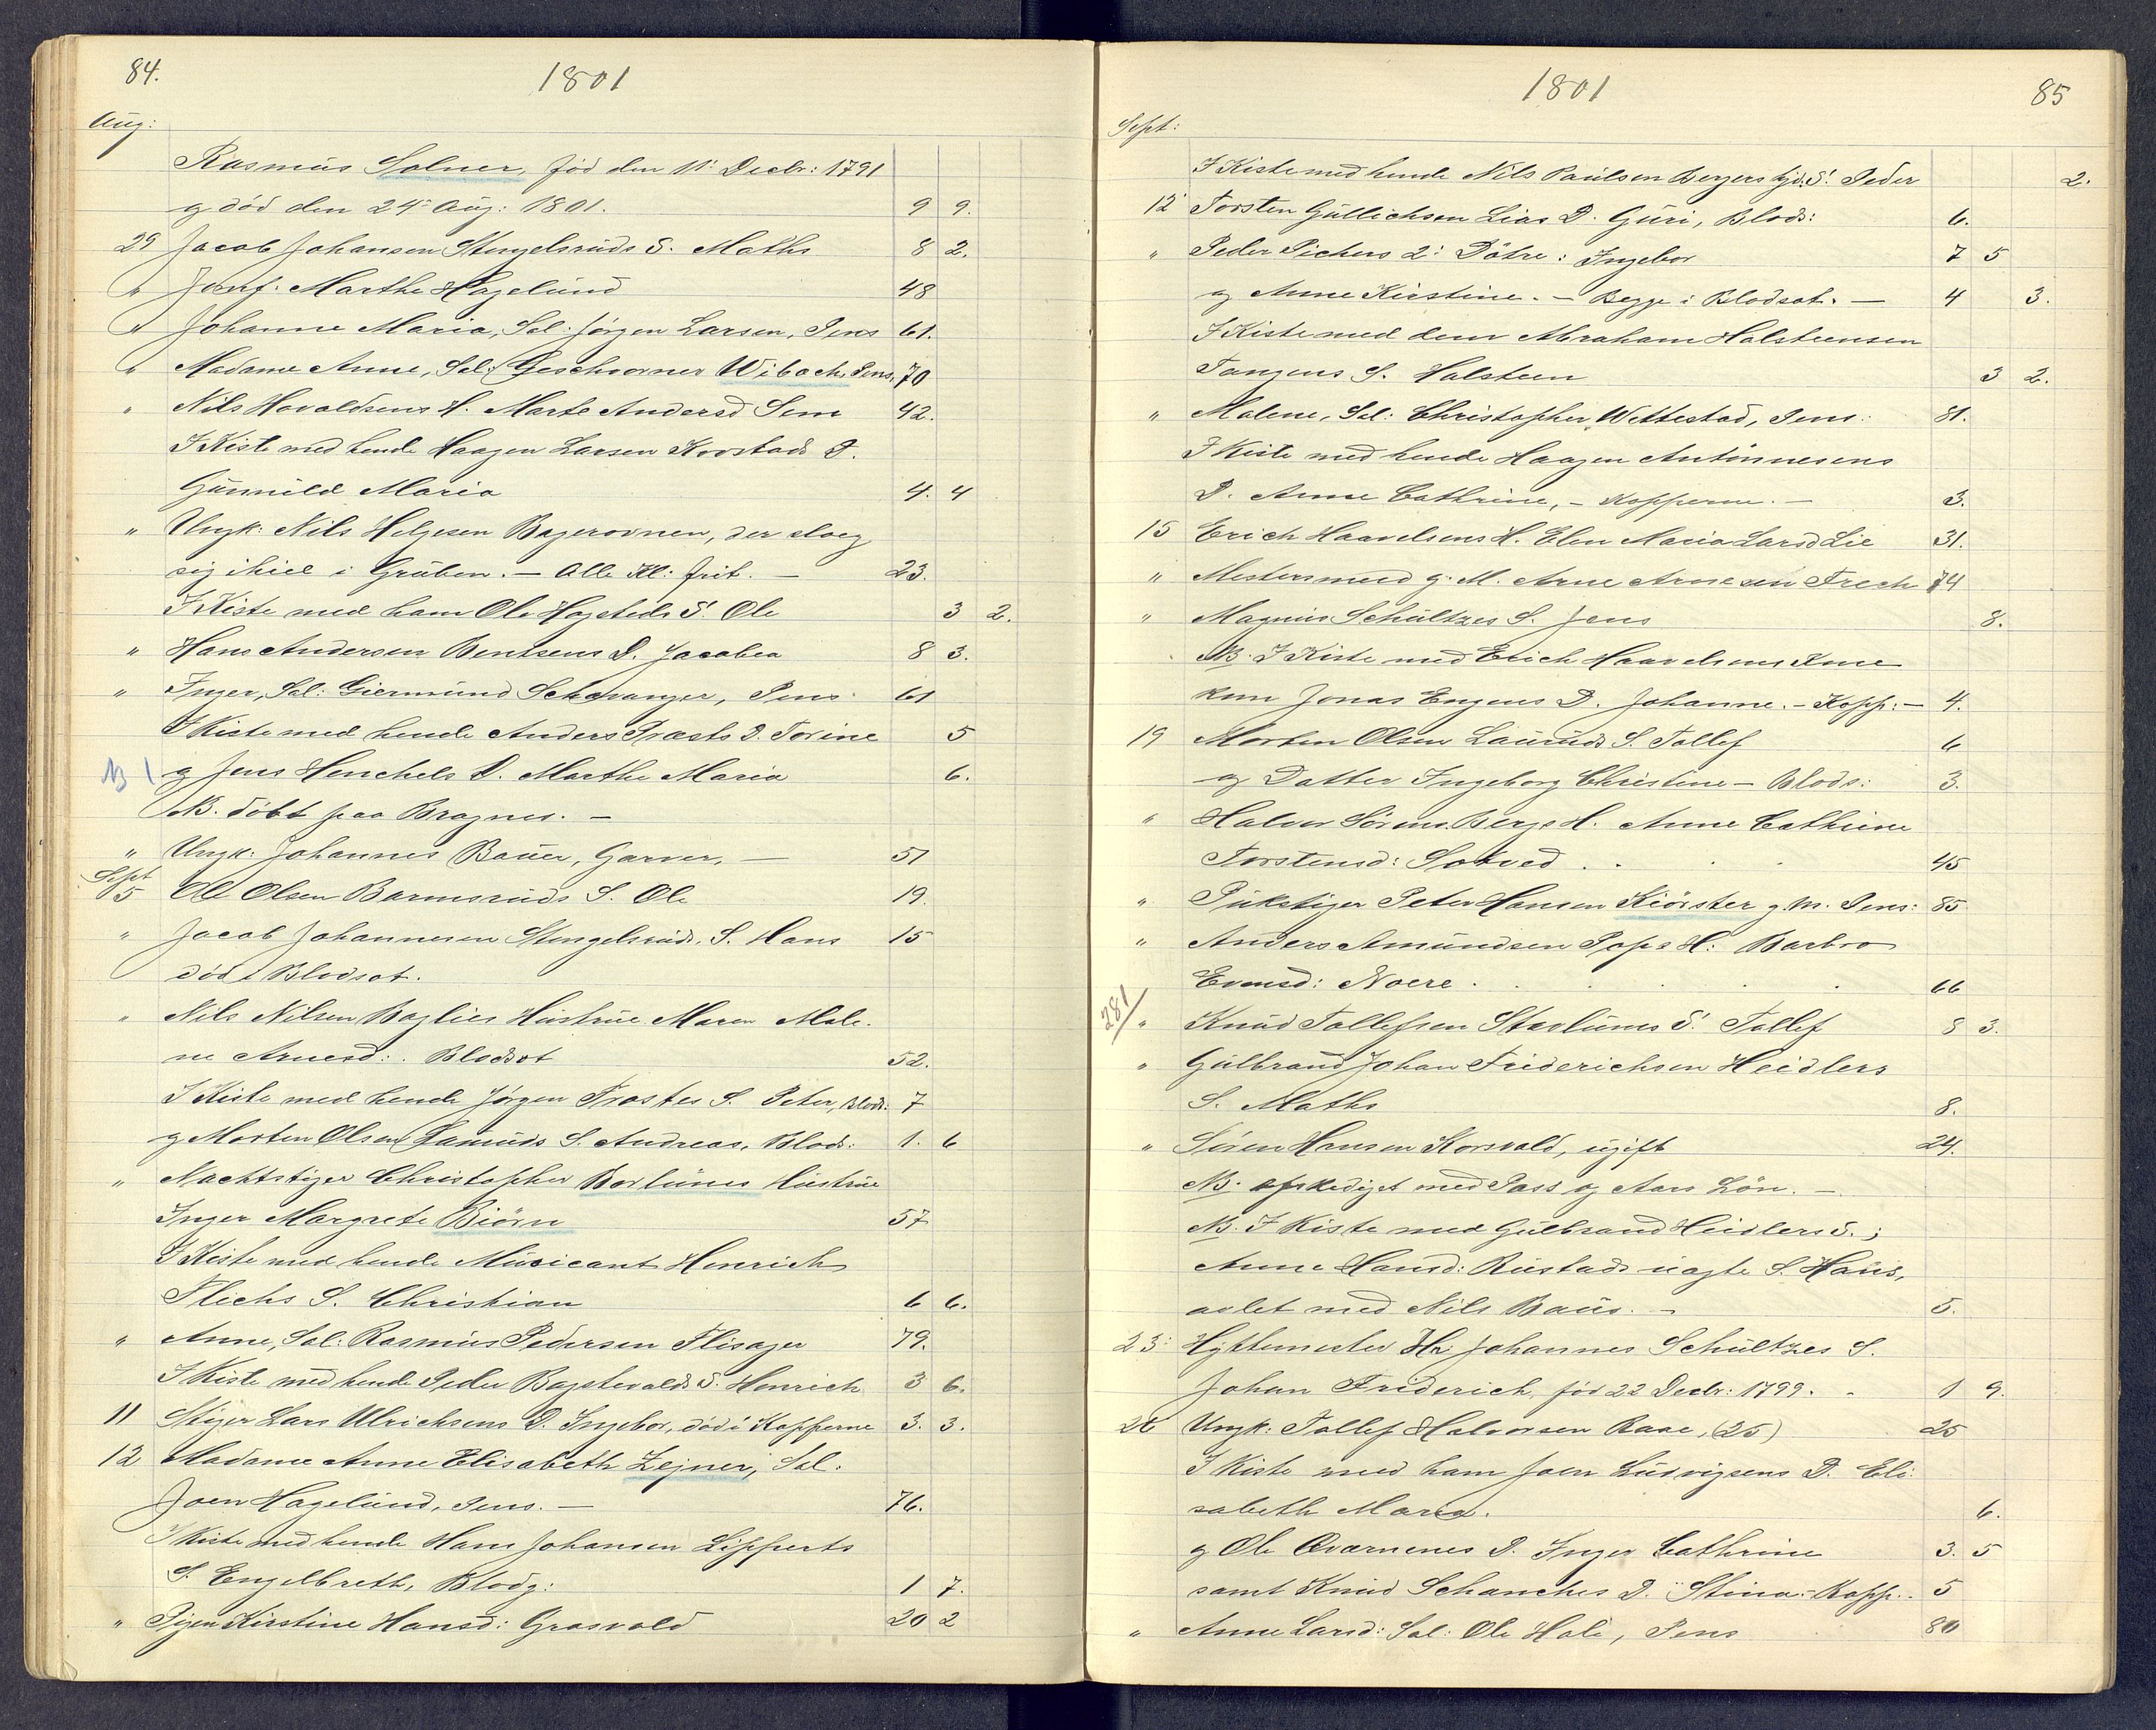 84.
1801
Aug:
Rasmus Solner, fød den 11' Decbr: 1791
og død den 24' Aug: 1801. 9 9.
29 Jacob Johansen Stengelsruds S. Mathis 8 2.
" Jomf. Marthe Hagelund 48
" Johanne Maria, Sal: Jørgen Larsen, Pens 61.
" Madame Anne, Sal: Geschworner Wibach, Pens. 70
" Nils Hovaldsens H. Marte Andersd Sem 42.
I Kiste med hende Haagen Larsen Korstads D.
Gunnild Maria 4. 4
" Ungk: Nils Helgesen Bagerovnen, der slog
sig ihiel i Gruben. — Alle Kl: frit. — 23.
I Kiste med ham Ole Hagsteds S. Ole 3 2.
" Hans Andersen Bentsens D. Jacobea 8 3.
" Inger, Sal: Giermund Schavanger, Pens 61
I Kiste med hende Anders Præsts D. Torine 5
NB og Jens Henchels D. Marthe Maria 6.
NB. døbt paa Bragnes. —
" Ungk: Johannes Bauer, Garver. — 51
Sept
5 Ole Olsen Barmsruds S. Ole 19.
" Jacob Johannesen Stengelsruds S. Hans 15
død i Blodsot.
" Nils Nilsen Baglies Hustrue Maren Male-
ne Arnesd: . Blodsot 52.
I Kiste med hende Jørgen Trostes S. Peter, Blods: 7
og Morten Olsen Lauruds S. Andreas, Blods: 1. 6
" Nachtstiger Christopher Borlunes Hustrue
Inger Margrete Biörn 57
I Kiste med hende Musicant Henrich
Flichs S. Christian 6 6.
" Anne, Sal: Rasmus Pedersen Flisager 79.
I Kiste med hende Peder Bagstevolds S. Henrich 3 6.
11 Stiger Lars Ulrichsens D. Ingebor, død i Kopperne 3. 3.
12 Madame Anne Elisabeth Zejner, Sal.
Joen Hagelund, Pens. — 76.
I Kiste med hende Hans Johansen Lipperts
S. Engelbreth, Blodg: 1 7.
" Pigen Kirstine Hansd: Grosvold 20 2
1801
85
Sept:
I Kiste med hende Nils Paulsen Bergers S. Peder 2.
12 Torsten Gullichsen Lias D. Guri, Blods: 6.
" Peder Pichers 2' Døtre: Ingebor 7 5
og Anne Kirstine. — Begge i Blodsot. — 4 3.
I Kiste med dem Abraham Halsteensen
Tangens S. Halsteen 3 2.
" Malene, Sal: Christopher Wettestad, Pens: 81.
I Kiste med hende Haagen Antonnesens
D. Anne Cathrine, — Kopperne. — 3.
15 Erich Haavelsens H. Elen Maria Larsd Lie 31.
" Mestersmed g. M. Arne Arnesen Frech 74
" Magnus Schultzes S. Jens 8.
NB. I Kiste med Erich Haavelsens Kone
kom Jonas Engens D. Johanne. — Kopp: — 4.
19 Morten Olsen Lauruds S. Tollef 6
og Datter Ingeborg Christine — Blods: 3.
" Halvor Sörens. Bergs H. Anne Cathrine
Torstensd: Solved . . . . 45
" Pukstiger Peter Hansen Kiörster g. M. Pens: 85
" Anders Amundsen Pops H: Barbro
Evensd: Noere . . . . . 66
281
" Knud Tollefsen Staalunes S. Tollef 8 3.
" Gulbrand Johan Friderichsen Heidlers
S. Mathis 8.
" Sören Hansen Korsvold, ugift 24.
NB. afskediget med Pass og Aars Lön. —
NB. I Kiste med Gulbrand Heidlers S.;
Anne Hansd: Rustads uægte S. Hans,
avlet med Nils Baus. — 5.
23: Hyttemester Hr Johannes Schultzes S.
Johan Friderich, fød 22 Decbr: 1799. . 1 9.
26 Ungk: Tollef Halvorsen Raae, (25) 25
I Kiste med ham Joen Ludvigsens D. Eli-
sabeth Maria. 6.
og Ole Qvarnenes D. Inger Cathrine 3. 5
samt Knud Schanches D. Stina: Kopp.. 5
" Anne Larsd: Sal: Ole Hole, Pens 80